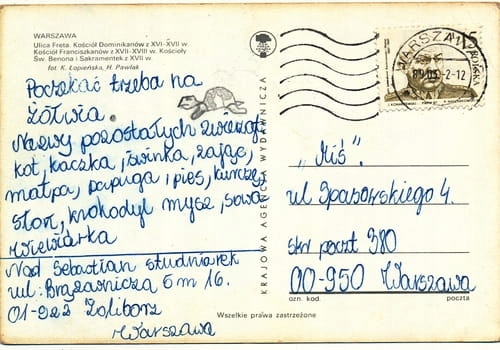 WARSZAWA
Ulica Freta. Kościół Dominikanów z XVI-XVII w.
Kościół Franciszkanów z XVII-XVIII w. Kościoły
Św. Benona i Sakramentek z XVII w.
fot. K. Łopieńska, H. Pawlak
Poczekać trzeba na
żółwia
Nazwy pozostałych zwierząt
kot, kaczka, świnka, zając,
małpa, papuga, pies, kurczę,
słoń, krokodyl mysz, sowa
Wiewiórka
Nad Sebastian studniarek
ul: Brązownicza 5 m 16.
01-922 Żoliborz
Warszawa
KRAJOWA AGENCJA WYDAWNICZA
WARSZAWA
-2-12
15
POLSKA
„Miś".
ul Spasowskiego 4.
skr poczt 380
00-950 Warszawa
ozn. kod. poczta
Wszelkie prawa zastrzeżone